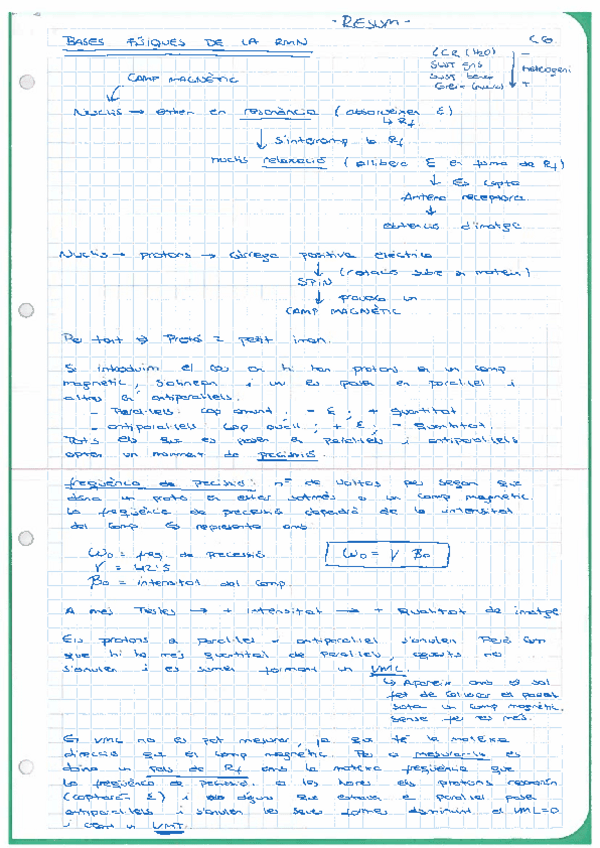 - RESUM -
BASES FÍSIQUES DE LA RMN
LCR (H2O) -
CAMP MAGNÈTIC
Nuclis → entren en ressonància (absorveixen E)
↳ Rf
↓ s'interromp la Rf
nuclis relaxació (allibera E en forma de Rf)
↓ Es capta
Antena receptora
↓
obtenció d'imatge
Nuclis → protons → Càrrega positiva elèctrica
↓ (rotació sobre si mateix)
SPIN
↓ provoca un
CAMP MAGNÈTIC
Per tant ⇒ Protó = petit iman.
Si introduim el cos on hi han protons en un camp
magnètic, s'alineen i un es posen en paral·lel i
altres en antiparal·lels.
- Paral·lels: cap amunt ; - E ; + quantitat
- antiparal·lels cap avall ; + E ; - quantitat.
Tots els que es posen en paral·lels i antiparal·lels
opten un moviment de precissió.
freqüència de precissió: nº de voltes per segon que
dona un protó en estar sotmès a un camp magnètic.
La freqüència de precessió dependrà de la intensitat
del camp. Es representa amb
ω0 = freq. de precessió
ω0 = γ B0
γ = 42'5
B0 = intensitat del camp.
A més Tesles → + intensitat → + qualitat de imatge
Els protons a paral·lel - antiparal·lel s'anulen. Però com
que hi ha més quantitat de paral·lels, aquests no
s'anulen i es sumen formant un VML.
↳ Apareix amb el sol
fet de col·locar el pacient
sota un camp magnètic.
sense fer res més.
El VML no es pot mesurar, ja que té la mateixa
direcció que el camp magnètic. Per a mesurar-la es
dona un pols de Rf amb la mateixa freqüència que
la freqüència de precissió. a les hores els protons
(captaran E) i algun que estava en paral·lel passa
antiparal·lels i s'anulen les seves forces disminuint el VML=0
i com un VMT.